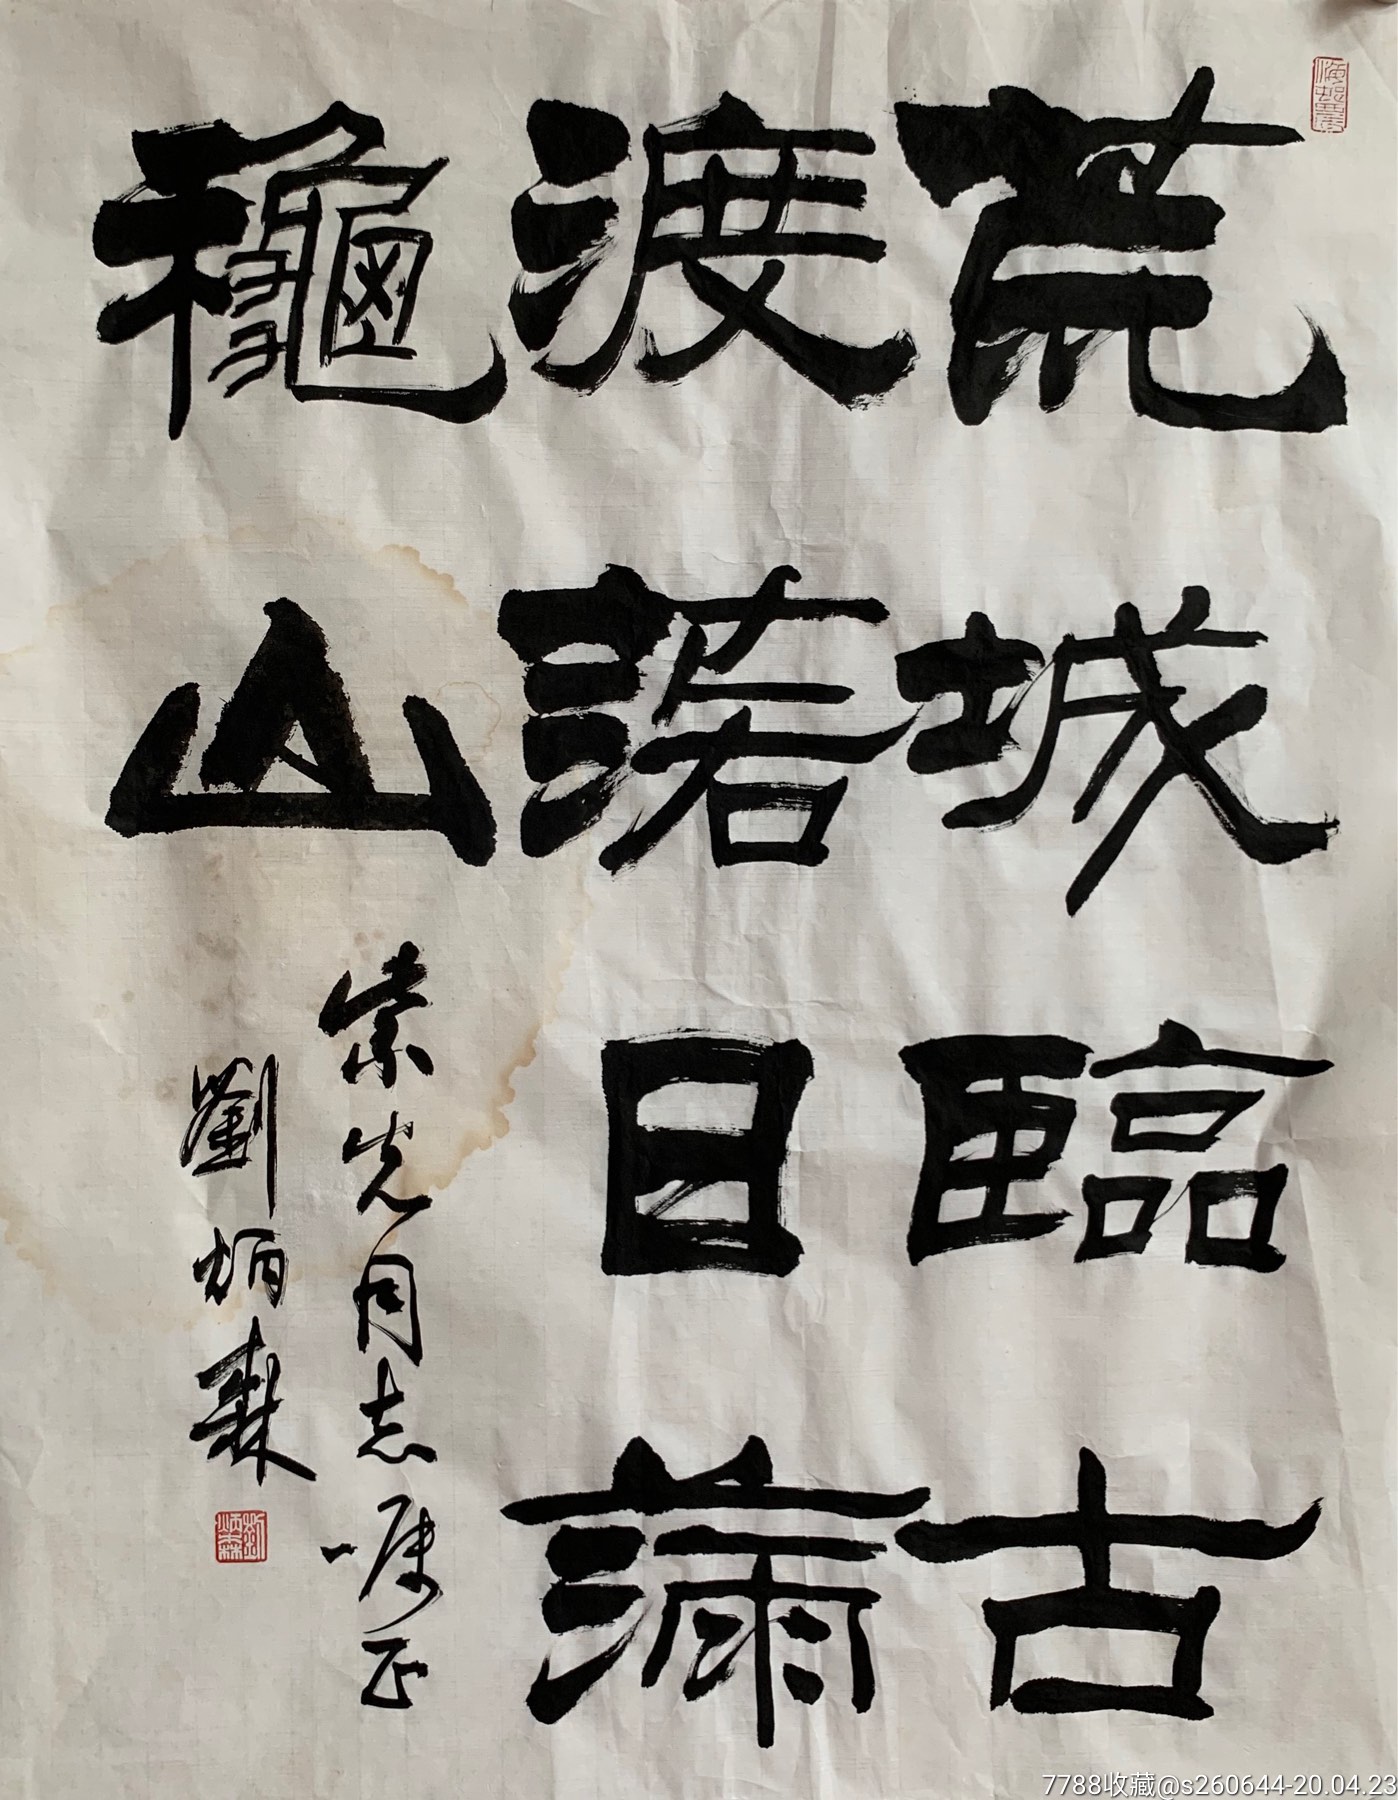 荒城臨古
渡落日滿
龝山
紫光同志嘱正
劉炳森
劉炳森
7788收藏@s260644-20.04.23